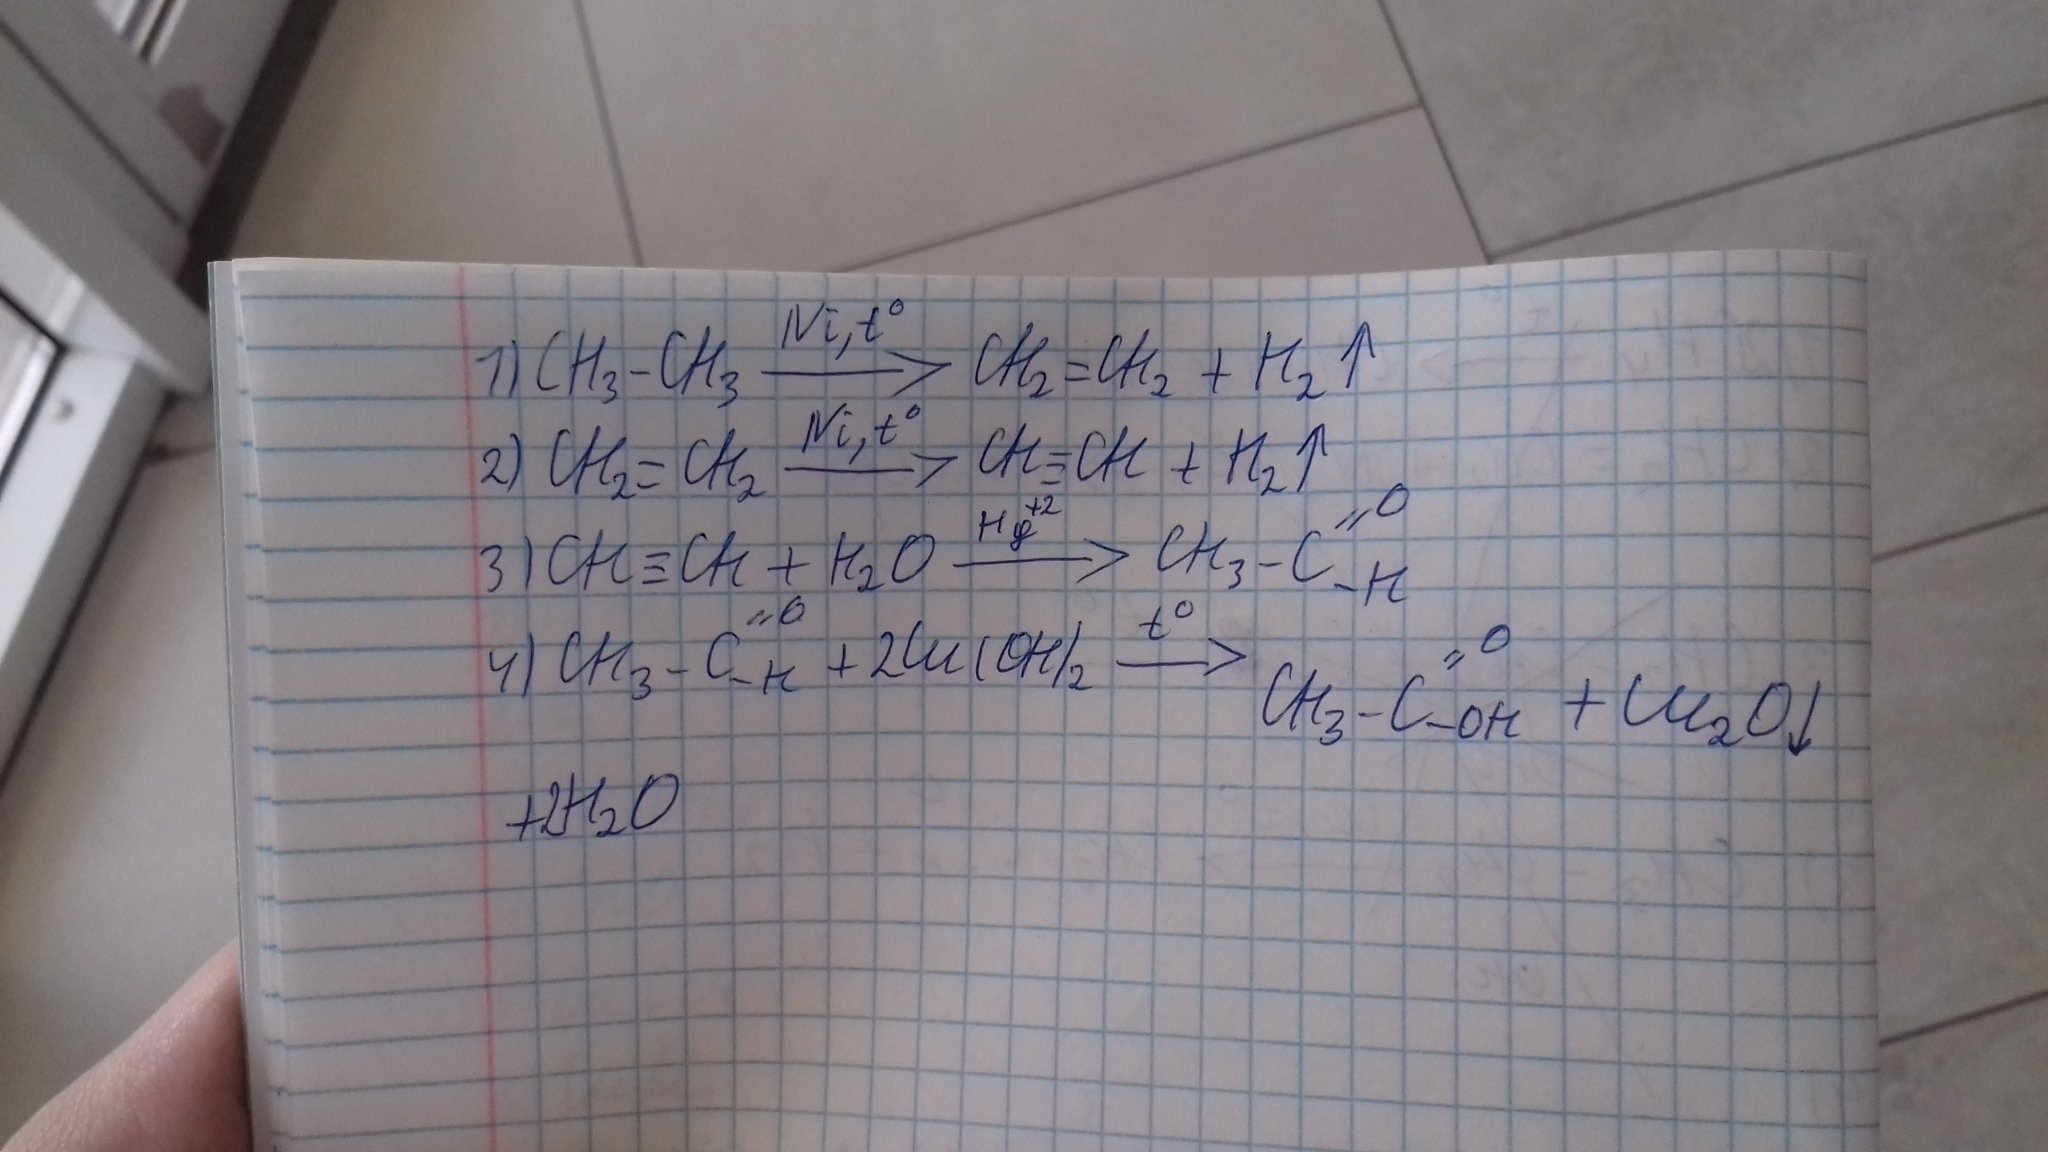 1) CH₃-CH₃ —Ni, t°→ CH₂=CH₂ + H₂↑
2) CH₂=CH₂ —Ni, t°→ CH≡CH + H₂↑
3) CH≡CH + H₂O —Hg⁺²→ CH₃-C(=O)-H
4) CH₃-C(=O)-H + 2Cu(OH)₂ —t°→ CH₃-C(=O)-OH + Cu₂O↓
+2H₂O